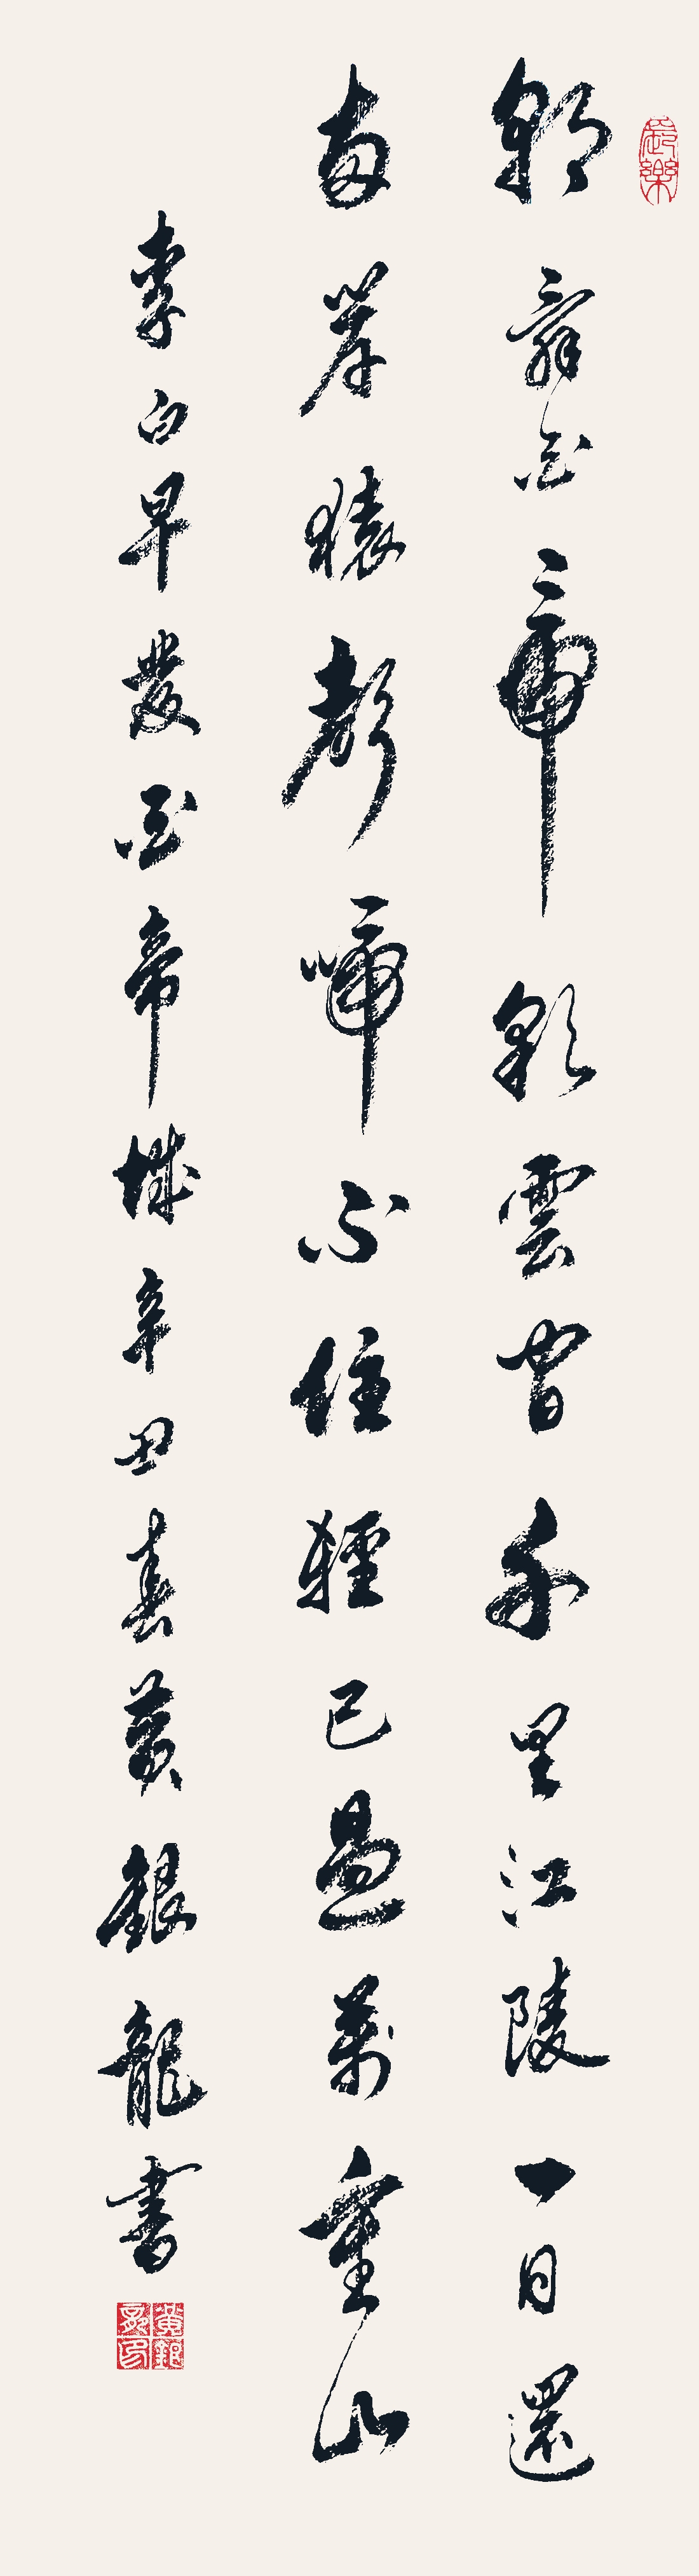 朝辭白帝彩雲間千里江陵一日還
兩岸猿聲啼不住輕已過萬重山
李白早發白帝城辛丑春黃銀龍書
黃銀龍印